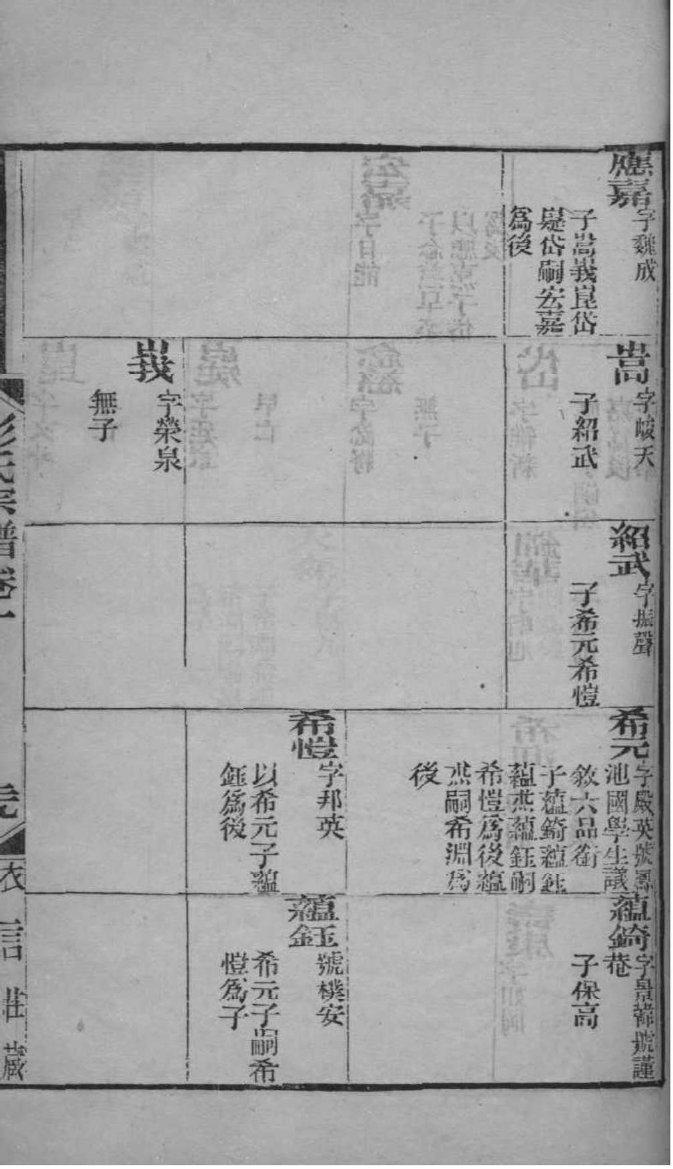 應嘉
字魏成
子嵩峩崑岱
嶷岱嗣宏嘉
爲後
嵩
字峻天
子紹武
峩
字榮泉
無子
紹武
字振聲
子希元希愷
希元
字殿英號鳳
池國學生議
敘六品銜
子蘊錡蘊鉒
蘊燕蘊鈺嗣
希愷爲後蘊
燕嗣希淵爲
後
希愷
字邦英
以希元子蘊
鈺爲後
蘊錡
字景韓號謹
菴
子保高
蘊鈺
號樸安
希元子嗣希
愷爲子
彭氏宗譜卷一
敦信莊藏